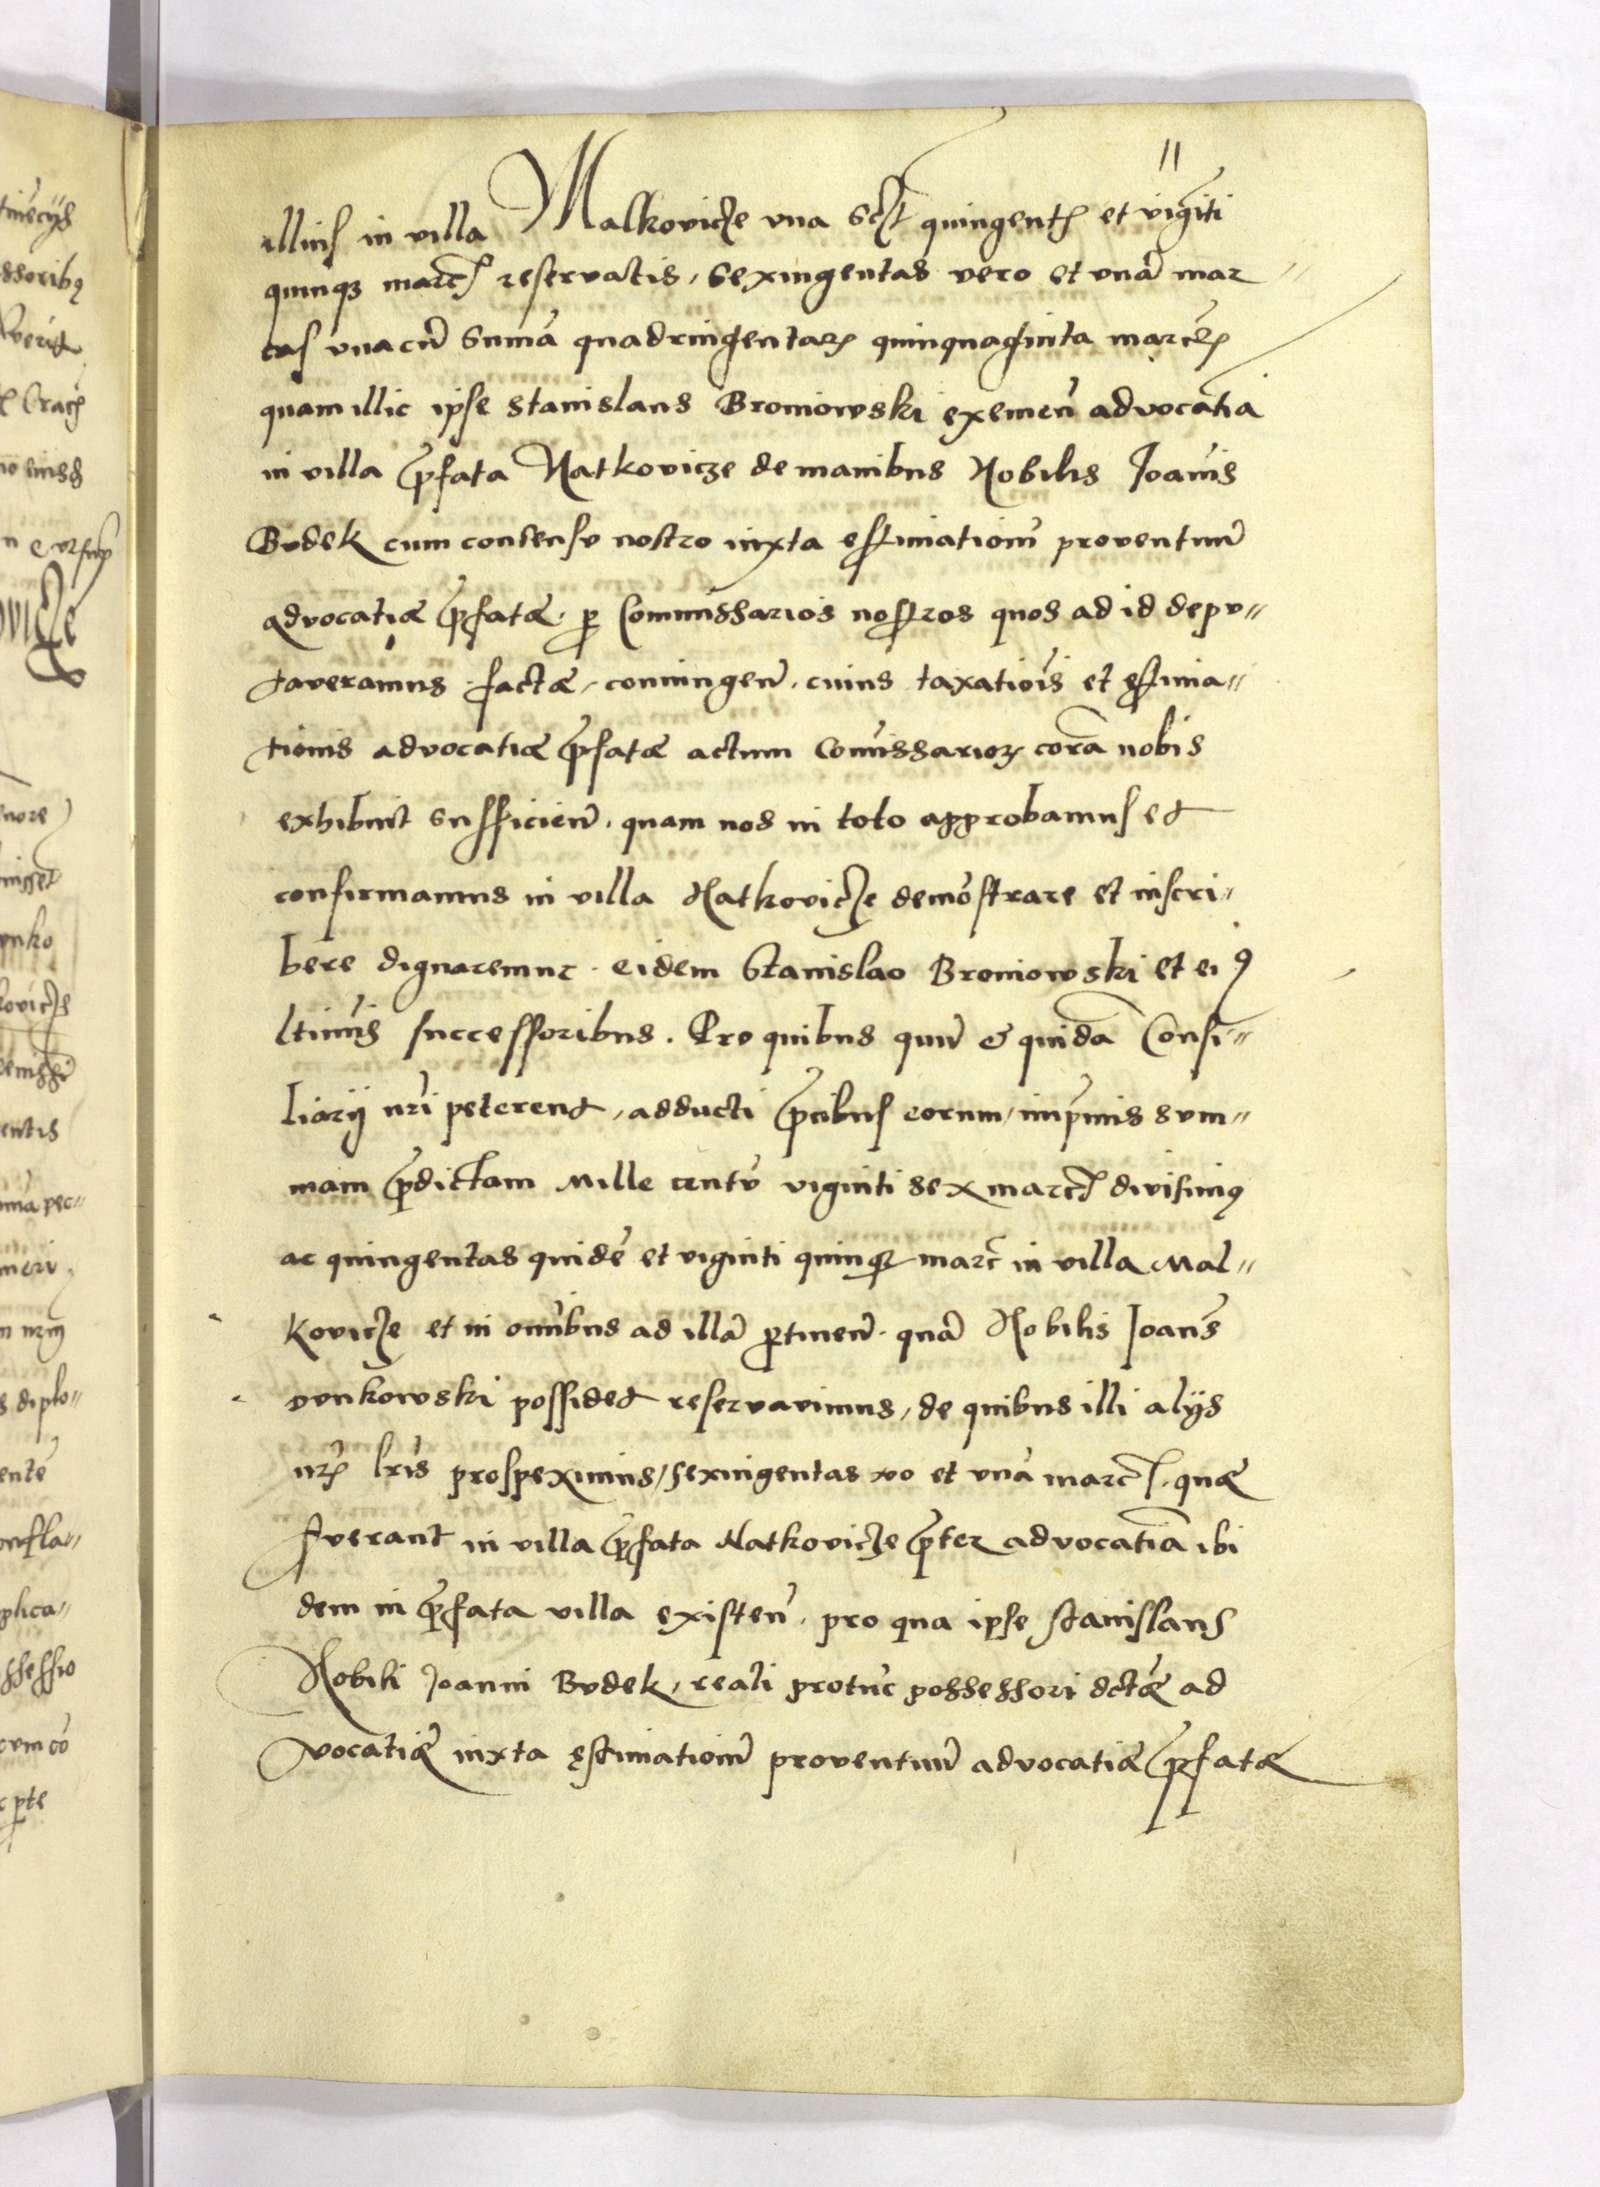 11
illius in villa Malkovicze vna sclt quingent et viginti
quinqȝ marc reservatis, sexingentas vero et vnā mar
cas vnacū sumā quadringentarꝫ quinquaginta marcarꝫ
quam illic ipse Stanislaus Broniowski exemeñ advocatiā
in villa p̄fata Natkovicze de manibus Nobilis Joañis
Budek cum consensv nostro iuxta estimationē proventuū
advocatiæ p̄fatæ. p Commissarios nostros quos ad id depv=
taveramus factæ, convingeñ. cuius taxatiōis et estima=
tionis advocatiæ p̄fatæ actum Comissarioꝝ corā nobis
exhibuit sufficieñ. quam nos in toto approbamus et
confirmamus in villa Natkovicze demōstrare et inscri=
bere dignaremur. eidem Stanislao Broniowski et eiꝰ
ltimis successoribus. Pro quibus quū & quidā Consi=
liarij nri peterent, adducti p̄cibus eorum, inprimis svm=
mam p̄dictam Mille centū viginti sex marc divisimꝰ
ac quingentas quidē et viginti quinqȝ marc in villa Mal=
kovicze et in omibus ad illā ptineñ. quā Nobilis Joañes
Dvnkowski possidet reservavimus, de quibus illi alijs
nrꝫ lris prospeximus, sexingentas vo et vnā marc. quæ
fverant in villa p̄fata Natkovicze p̄ter advocatiā ibi
dem in p̄fata villa existeñ. pro qua ipse Stanislaus
Nobili Joanni Budek, reali protūc possessori dctæ ad
vocatiæ iuxta estimationē proventuū advocatiæ p̄fatæ